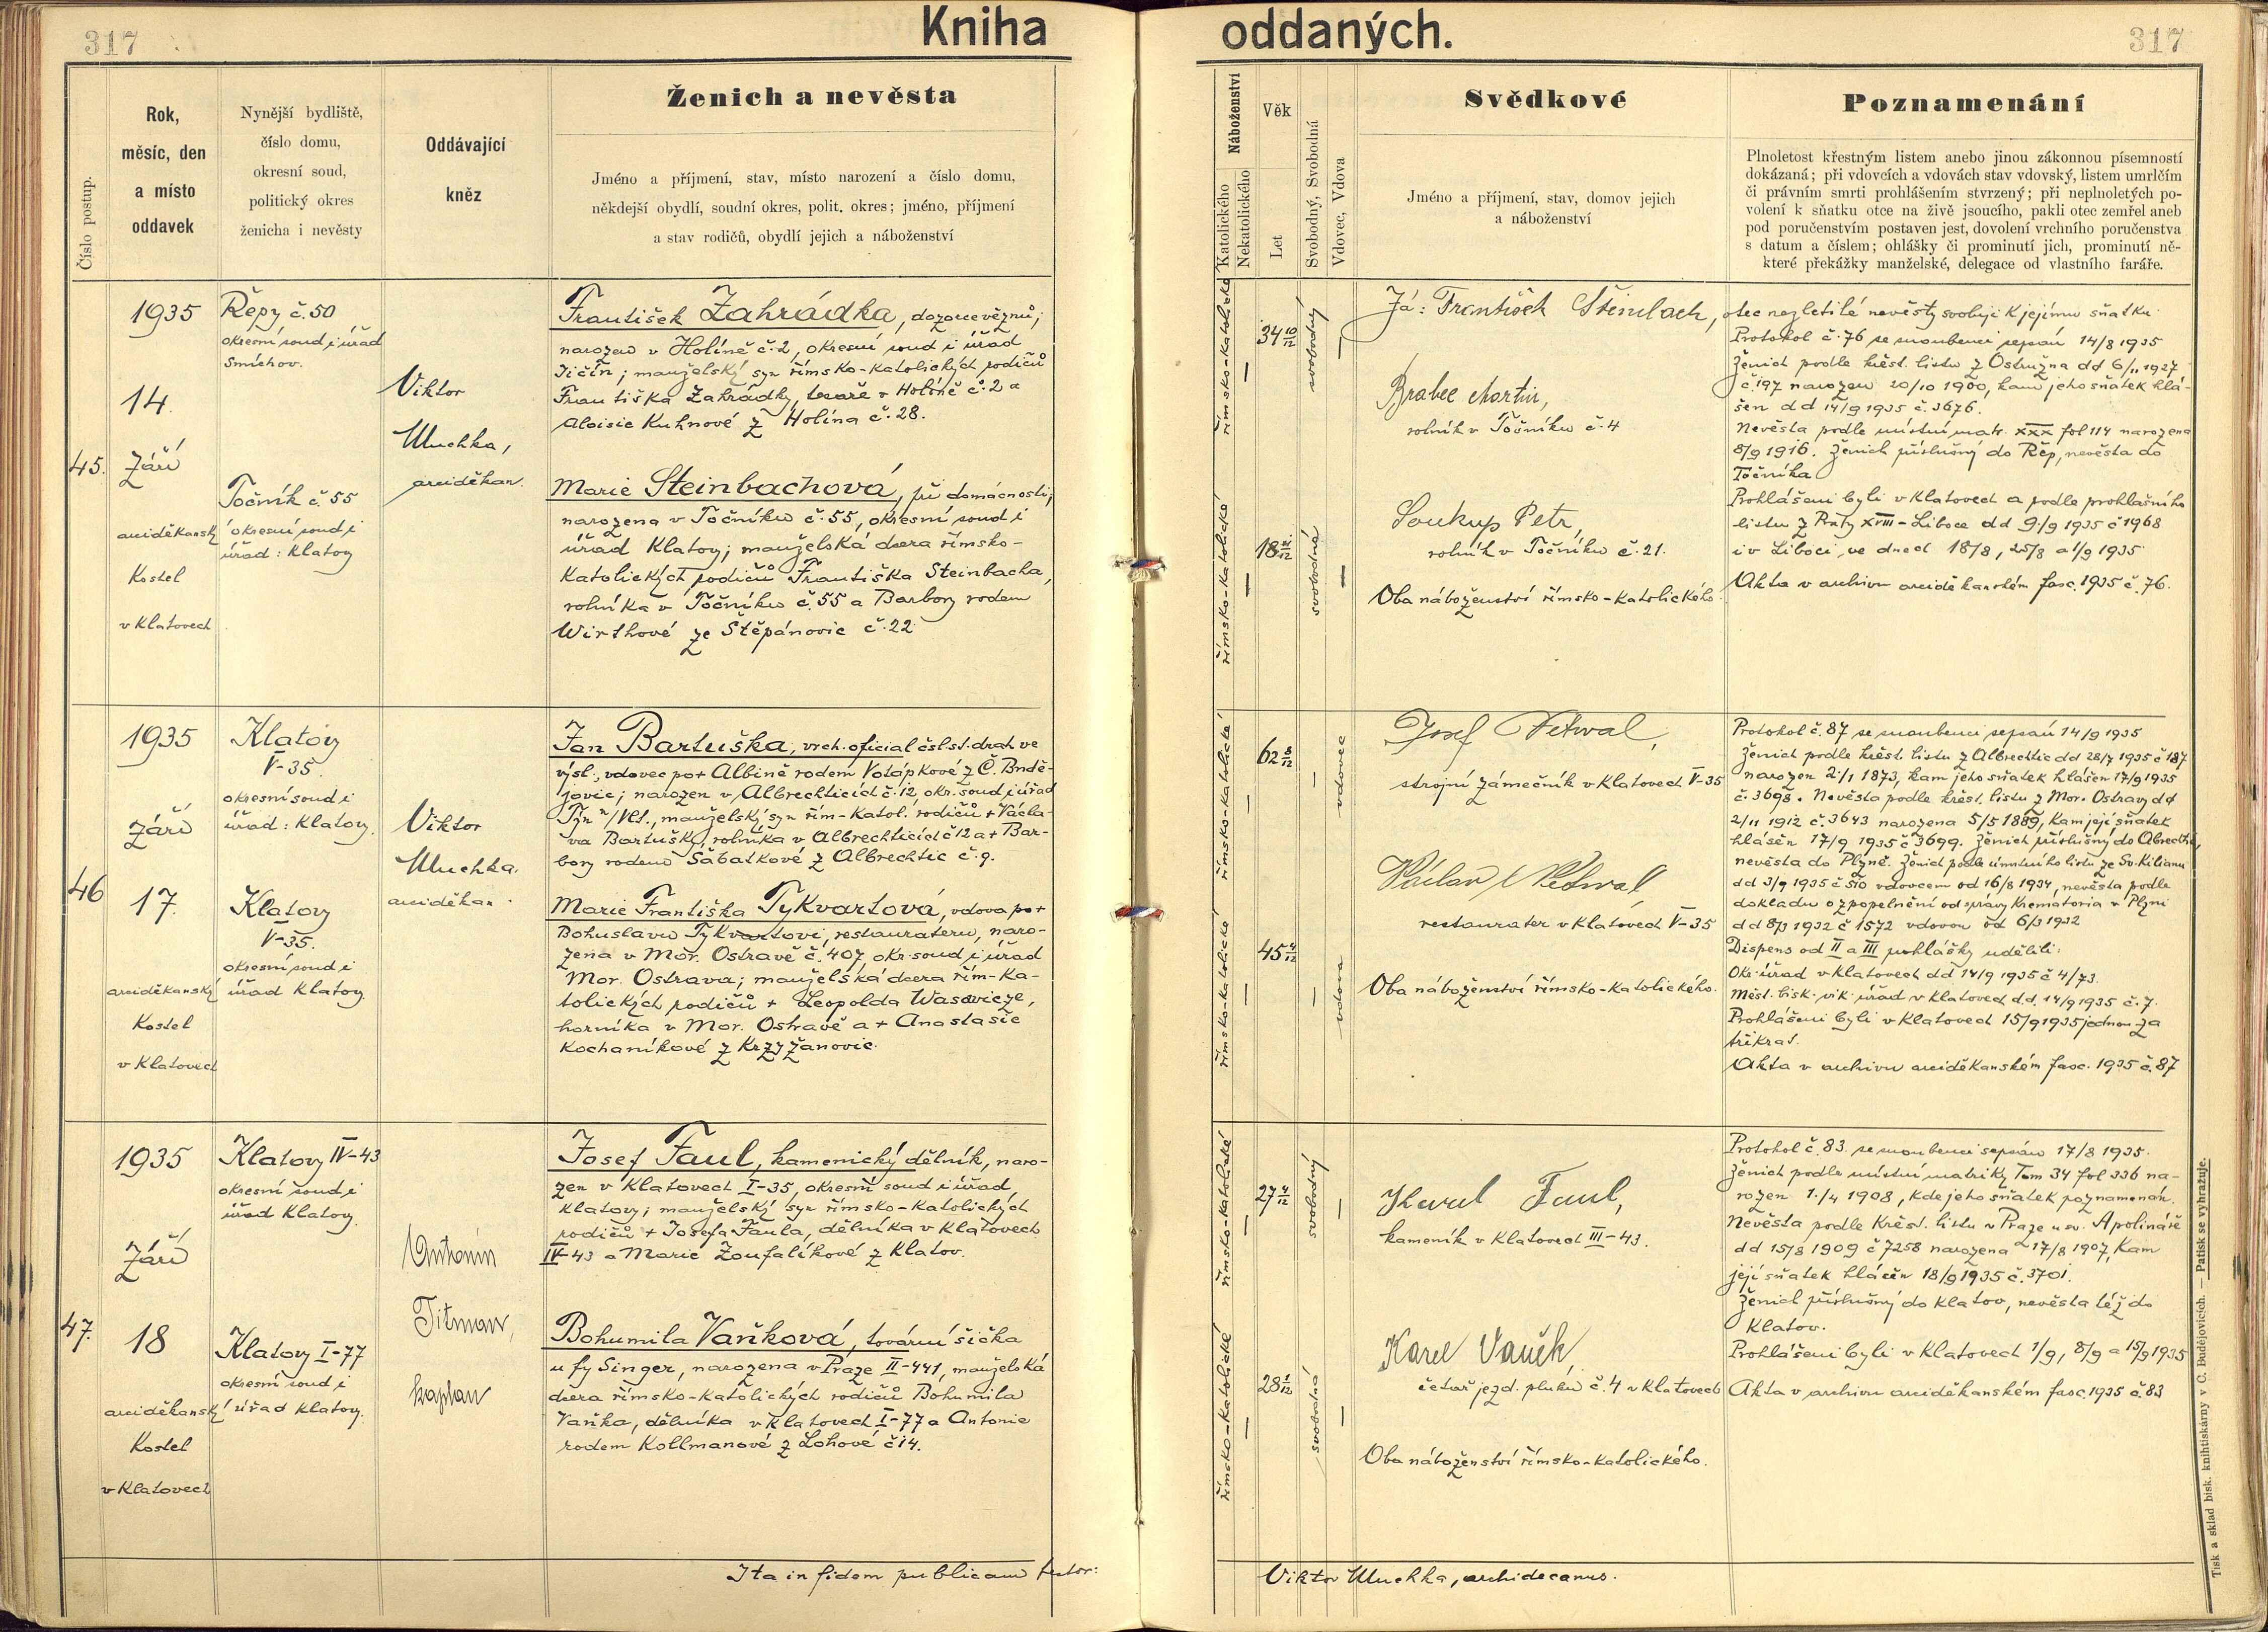 317
Kniha
oddaných.
317
Číslo postup.
Rok,
měsíc, den
a místo
oddavek
Nynější bydliště,
číslo domu,
okresní soud,
politický okres
ženicha i nevěsty
Oddávající
kněz
Ženich a nevěsta
Jméno a příjmení, stav, místo narození a číslo domu,
někdejší obydlí, soudní okres, polit. okres; jméno, příjmení
a stav rodičů, obydlí jejich a náboženství
Náboženství
Katolického
Nekatolického
Věk
Let
Svobodný, Svobodná
Vdovec, Vdova
Svědkové
Jméno a příjmení, stav, domov jejich
a náboženství
Poznamenání
Plnoletost křestným listem anebo jinou zákonnou písemností
dokázaná; při vdovcích a vdovách stav vdovský, listem umrlčím
či právním smrti prohlášením stvrzený; při neplnoletých po-
volení k sňatku otce na živě jsoucího, pakli otec zemřel aneb
pod poručenstvím postaven jest, dovolení vrchního poručenstva
s datum a číslem; ohlášky či prominutí jich, prominutí ně-
které překážky manželské, delegace od vlastního faráře.
45.
1935
14.
září
arciděkanský
kostel
v Klatovech
Řepy č. 50
okresní soud i úřad
Smíchov.
Točník č. 55
okresní soud i
úřad: Klatovy
Viktor
Muchka,
arciděkan.
František Zahrádka, dozorce vězňů;
narozen v Holíně č. 2, okresní soud i úřad
Jičín; manželský syn římsko-katolických rodičů
Františka Zahrádky, tesaře v Holíně č. 2 a
Aloisie Kuhnové z Holína č. 28.
Marie Steinbachová, při domácnosti;
narozena v Točníku č. 55, okresní soud i
úřad Klatovy; manželská dcera římsko-
katolických rodičů Františka Steinbacha,
rolníka v Točníku č. 55 a Barbory rodem
Wirthové ze Štěpánovic č. 22
římsko-katolické
římsko-katolické
34 10/12
18
svobodný
svobodná
Já: František Šteinbach, otec nezletilé nevěsty svoluji k jejímu sňatku
Brabec Martin,
rolník v Točníku č. 4
Soukup Petr,
rolník v Točníku č. 21.
Oba náboženství římsko-katolického.
Protokol č. 76 se snoubenci sepsán 14/8 1935
Ženich podle křest. listu z Ostružna dd 6/11 1927
č. 197 narozen 20/10 1900, kam jeho sňatek hlá-
šen dd 14/9 1935 č. 3676.
Nevěsta podle místní matr. XXX fol 114 narozena
8/9 1916. Ženich příslušný do Řep, nevěsta do
Točníka
Prohlášeni byli v Klatovech a podle prohlašního
listu z Prahy XVIII - Liboce dd 9/9 1935 č 1968
i v Liboci, ve dnech 18/8, 25/8 a 1/9 1935
Akta v archivu arciděkanském fasc. 1935 č. 76.
46
1935
září
17.
arciděkanský
kostel
v Klatovech
Klatovy
V-35.
okresní soud i
úřad: Klatovy.
Klatovy
V-35.
okresní soud i
úřad Klatovy.
Viktor
Muchka,
arciděkan.
Jan Bartuška, vrch. oficial čsl. st. drah ve
výsl., vdovec po + Albině rodem Votápkové z Č. Budě-
jovic; narozen v Albrechticích č. 12, okr. soud i úřad
Týn n/Vlt., manželský syn řím-katol. rodičů + Václa-
va Bartušky, rolníka v Albrechticích č 12 a + Bar-
bory rodem Šabatkové z Albrechtic č. 9.
Marie Františka Tykvartová, vdova po +
Bohuslavu Tykvartovi, restauraterů, naro-
zena v Mor. Ostravě č. 407, okr. soud i úřad
Mor. Ostrava; manželská dcera řím-ka-
tolických rodičů + Leopolda Wasowicze,
horníka v Mor. Ostravě a + Anastasie
Kochaníkové z Krzyžanovic.
římsko-katolické
římsko-katolické
62 8/12
45 4/12
vdovec
vdova
Josef Netwal,
strojní zámečník v Klatovech V-35
Václav Netwal
restaurater v Klatovech V-35
Oba náboženství římsko-katolického.
Protokol č. 87 se snoubenci sepsán 14/9 1935
Ženich podle křest. listu z Albrechtic dd 28/7 1935 č 187
narozen 2/1 1873, kam jeho sňatek hlášen 17/9 1935
č. 3698. Nevěsta podle křest. listu z Mor. Ostravy dd
2/11 1912 č. 3643 narozena 5/5 1889, kam její sňatek
hlášen 17/9 1935 č 3699. Ženich příslušný do Albrechtic,
nevěsta do Plzně. Ženich podle úmrtního listu ze Sv. Kiliana
dd 3/9 1935 č 510 vdovcem od 16/8 1934, nevěsta podle
dokladu o zpopelnění od správy krematoria v Plzni
dd 8/3 1932 č 1572 vdovou od 6/3 1932
Dispens od II a III ohlášky udělili:
Okr. úřad v Klatovech dd 14/9 1935 č 4/73.
Měst. bisk. vik. úřad v Klatovech dd. 14/9 1935 č. 7.
Prohlášeni byli v Klatovech 15/9 1935 jednou za
třikrát.
Akta v archivu arciděkanském fasc. 1935 č. 87
47.
1935
září
18
arciděkanský
kostel
v Klatovech
Klatovy IV-43
okresní soud i
úřad Klatovy.
Klatovy I-77
okresní soud i
úřad Klatovy.
Antonín
Titman,
kaplan
Josef Faul, kamenický dělník, naro-
zen v Klatovech I-35, okresní soud i úřad
Klatovy; manželský syn římsko-katolických
rodičů + Josefa Faula, dělníka v Klatovech
IV-43 a Marie Zoufalíkové z Klatov.
Bohumila Vaňková, tovární šička
u fy Singer, narozena v Praze II-441, manželská
dcera římsko-katolických rodičů Bohumila
Vaňka, dělníka v Klatovech I-77 a Antonie
rodem Kollmanové z Lohové č 14.
římsko-katolické
římsko-katolické
27
28 1/12
svobodný
svobodná
Karel Faul,
kameník v Klatovech III-43.
Karel Vaněk,
četař jezd. pluku č. 4 v Klatovech
Oba náboženství římsko-katolického.
Protokol č. 83 se snoubenci sepsán 17/8 1935.
Ženich podle místní matriky Tom 34 fol 336 na-
rozen 1./4 1908, kde jeho sňatek poznamenán.
Nevěsta podle křest. listu v Praze u sv. Apolináře
dd 15/8 1909 č 7258 narozena 17/8 1907, kam
její sňatek hlášen 18/9 1935 č. 3701.
Ženich příslušný do Klatov, nevěsta též do
Klatov.
Prohlášeni byli v Klatovech 1/9, 8/9 a 15/9 1935
Akta v archivu arciděkanském fasc. 1935 č 83
Ita in fidem publicam testor:
Viktor Muchka, archidecanus.
Tisk a sklad bisk. knihtiskárny v Č. Budějovicích. — Patisk se vyhražuje.